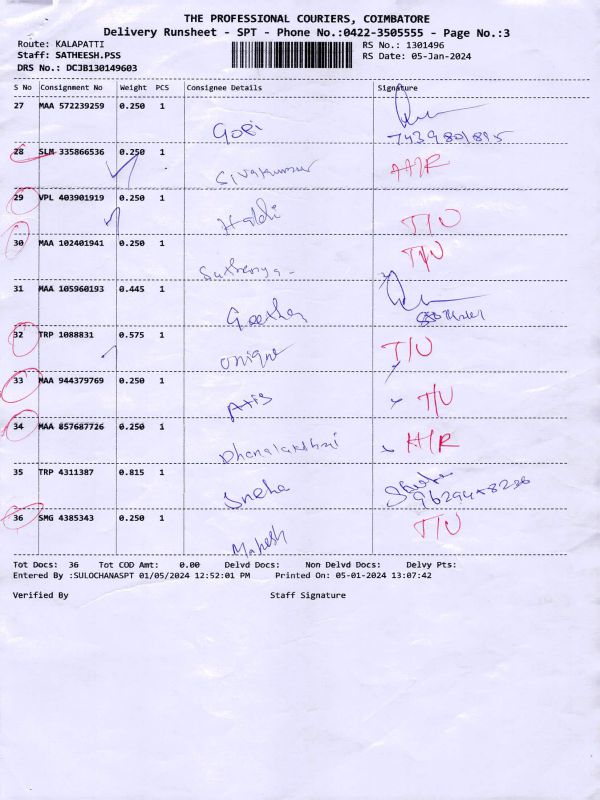 THE PROFESSIONAL COURIERS, COIMBATORE
Delivery Runsheet - SPT - Phone No.:0422-3505555 - Page No.:3
Route: KALAPATTI RS No.: 1301496
Staff: SATHEESH.PSS RS Date: 05-Jan-2024
DRS No.: DCJB130149603
S No Consignment No Weight PCS Consignee Details Signature
27 MAA 572239259 0.250 1
Gopi 7439801895
28 SLM 335866536 0.250 1
Sivakumar H/R
29 VPL 403901919 0.250 1
Haldi T/U
30 MAA 102401941 0.250 1 T/U
31 MAA 105960193 0.445 1
Geetha
32 TRP 1088831 0.575 1
Unique T/U
33 MAA 944379769 0.250 1
T/U
34 MAA 857687726 0.250 1
Dhanalakshmi H/R
35 TRP 4311387 0.815 1
Sneha
36 SMG 4385343 0.250 1
Mahesh T/U
Tot Docs: 36 Tot COD Amt: 0.00 Delvd Docs: Non Delvd Docs: Delvy Pts:
Entered By :SULOCHANASPT 01/05/2024 12:52:01 PM Printed On: 05-01-2024 13:07:42
Verified By Staff Signature